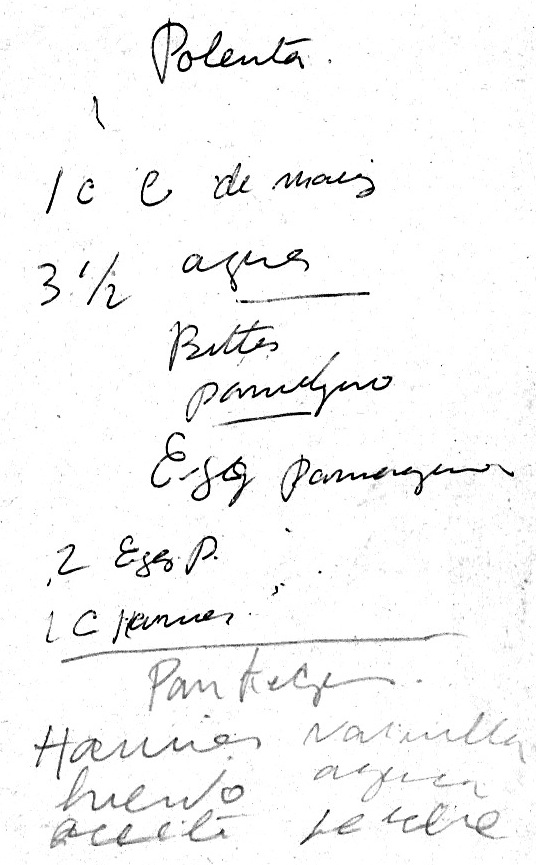 Polenta.
1 c C de maiz
3 1/2 agua
Butter
parmesano
Eggs parmesano
2 Eggs P.
1 C Harina
Pan
Harina vainilla
huevo agua
aceite leche